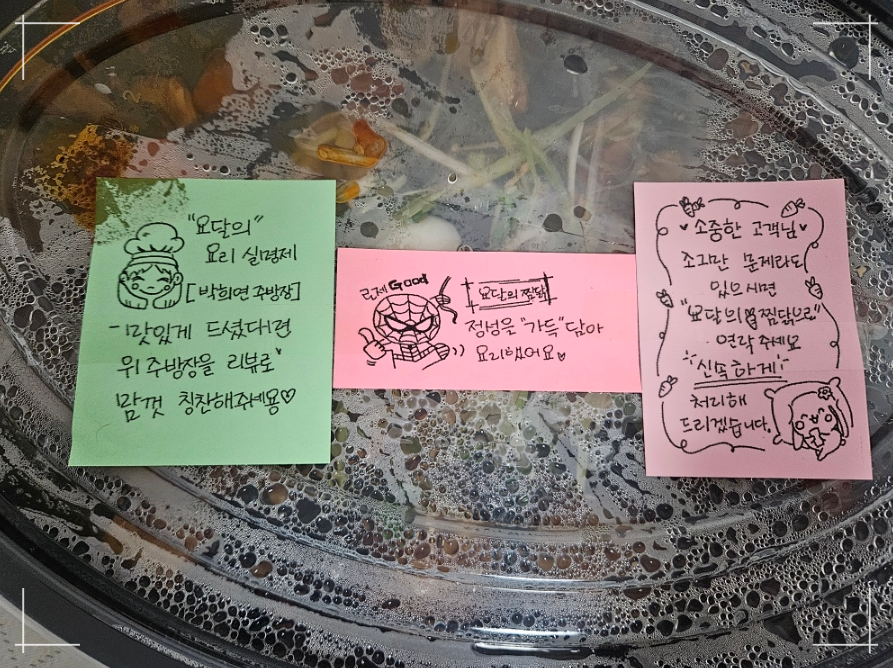 "요달의"
요리 실명제
[박희연 주방장]
맛있게 드셨다면
위 주방장을 리뷰로
맘껏 칭찬해주세용♡
언제 Good
요달의 찜닭
정성을 "가득" 담아
요리했어요♥
♥소중한 고객님♥
조그만 문제라도
있으시면
"요달의 찜닭으로"
연락 주세요
신속하게!
처리해
드리겠습니다.